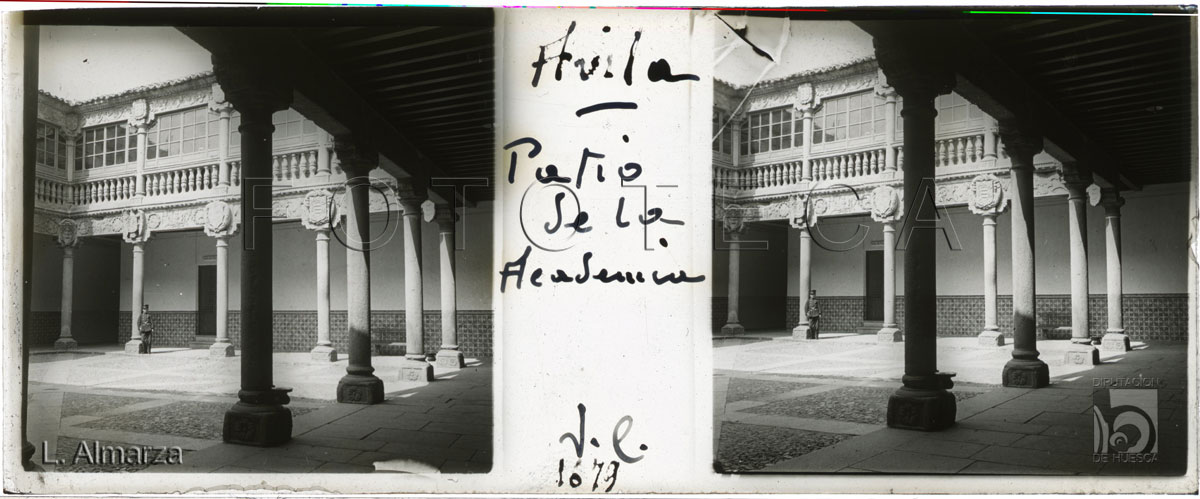 Avila
Patio
de la
Academia
J.C.
1679
FOTOTECA
L. Almarza
DIPUTACIÓN
DE HUESCA